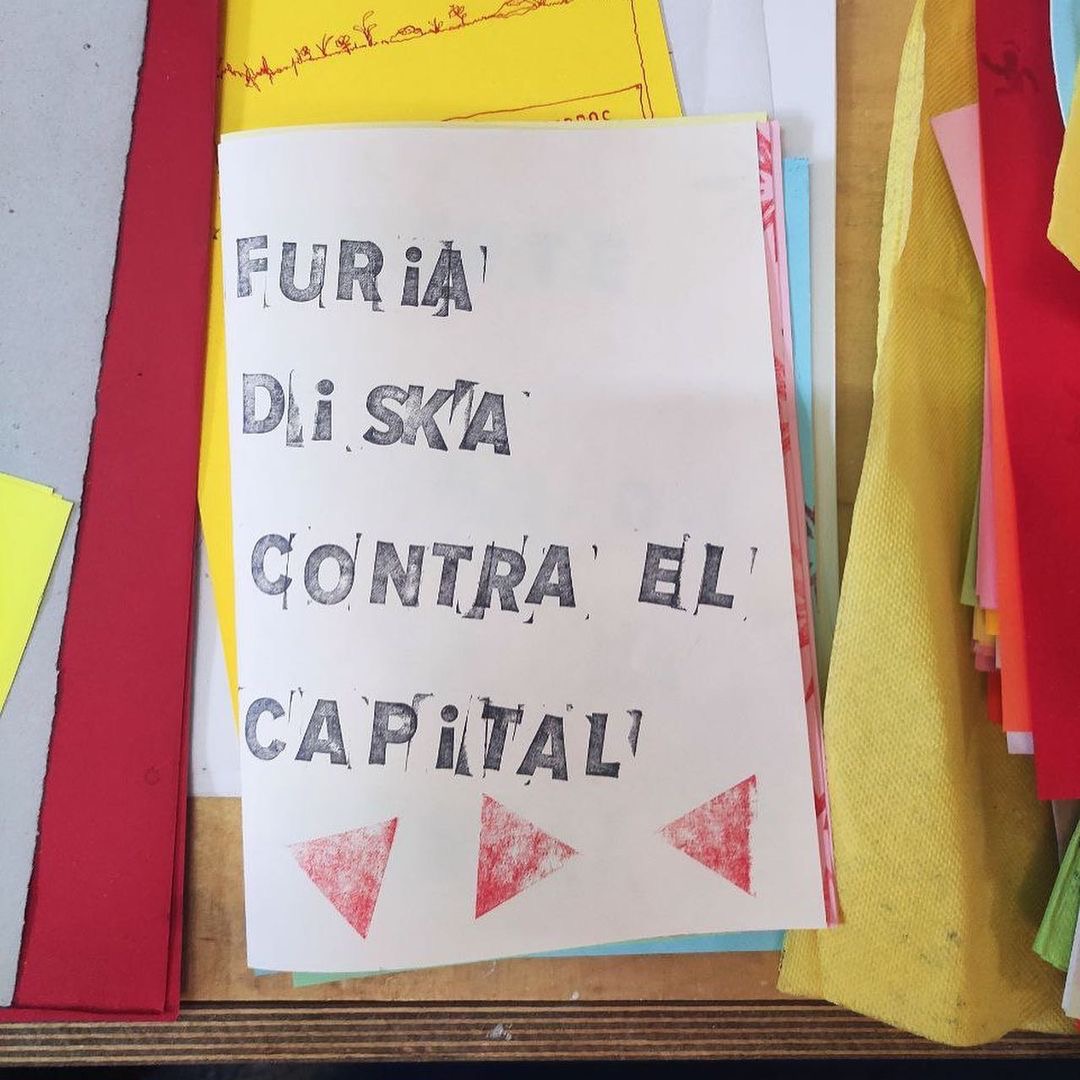 FURiA
DiSKA
CONTRA EL
CAPiTAL